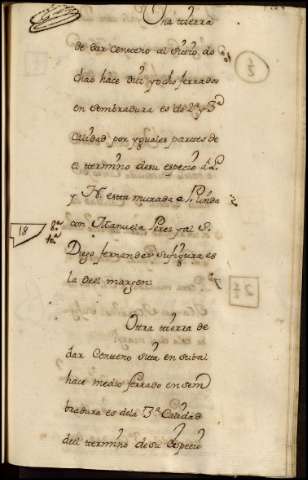 Una tierra
de dar Centeno al sitio do
chao hace diez y ocho ferrados
en sembradura es de 2ª y 3ª
Calidad por yguales partes de
el termino de su especie a L.
y N. esta murada a P. linda
con Manuela Peres y al S.
Diego fernandez su figura es
la del margen
18
Otra tierra de
dar Centeno sita en
hace medio ferrado en sem
bradura es de la 3ª Calidad
del termino de su Especie